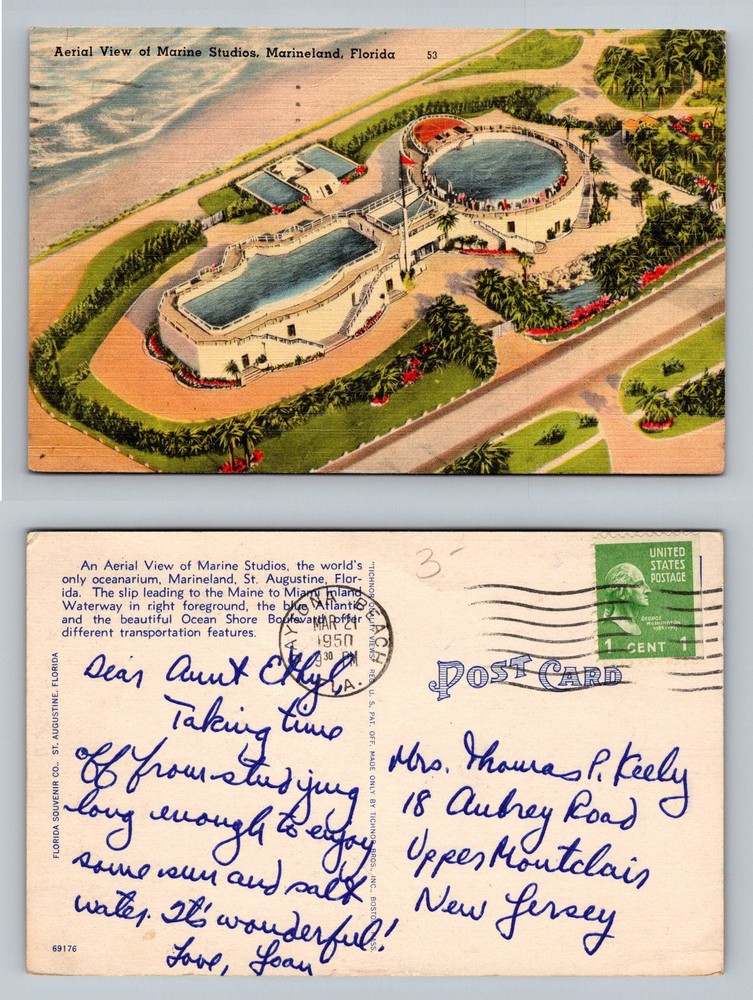 Aerial View of Marine Studios, Marineland, Florida 53
An Aerial View of Marine Studios, the world's
only oceanarium, Marineland, St. Augustine, Flor-
ida. The slip leading to the Maine to Miami Inland
Waterway in right foreground, the blue Atlantic
and the beautiful Ocean Shore Boulevard offer
different transportation features.
FLORIDA SOUVENIR CO., ST. AUGUSTINE, FLORIDA
69176
Dear Aunt Ethyl
Taking time
off from studying
long enough to enjoy
some sun and salt
water. It's wonderful!
Love, Joan
"TICHNOR QUALITY VIEWS" REG. U. S. PAT. OFF. MADE ONLY BY TICHNOR BROS., INC., BOSTON, MASS.
DAYTONA BEACH
MAR 21
1950
9 30 PM
FLA.
3-
UNITED
STATES
POSTAGE
GEORGE
WASHINGTON
1 CENT 1
POST CARD
Mrs. Thomas P. Keely
18 Aubrey Road
Upper Montclair
New Jersey